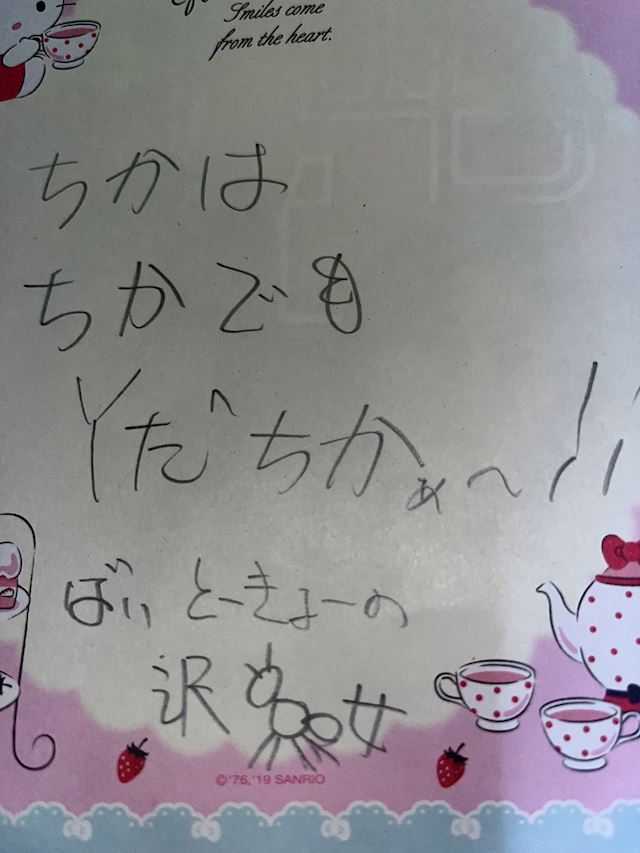 Smiles come
from the heart.
ちかは
ちかでも
Yだへちかぁ〜!!
ばぃ とーきょーの
沢 女
©'76,'19 SANRIO